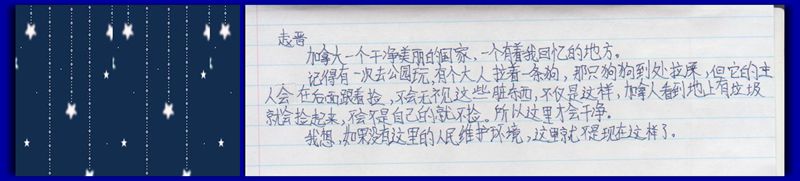 赵晋
加拿大一个干净美丽的国家，一个有着我回忆的地方。
记得有一次去公园玩，有个大人拉着一条狗，那只狗狗到处拉屎，但它的主
人会在后面跟着捡，不会无视这些脏东西，不仅是这样，加拿人看到地上有垃圾
就会捡起来，不会不是自己的就不捡。所以这里才会干净。
我想，如果没有这里的人民维护环境，这里就不是现在这样了。